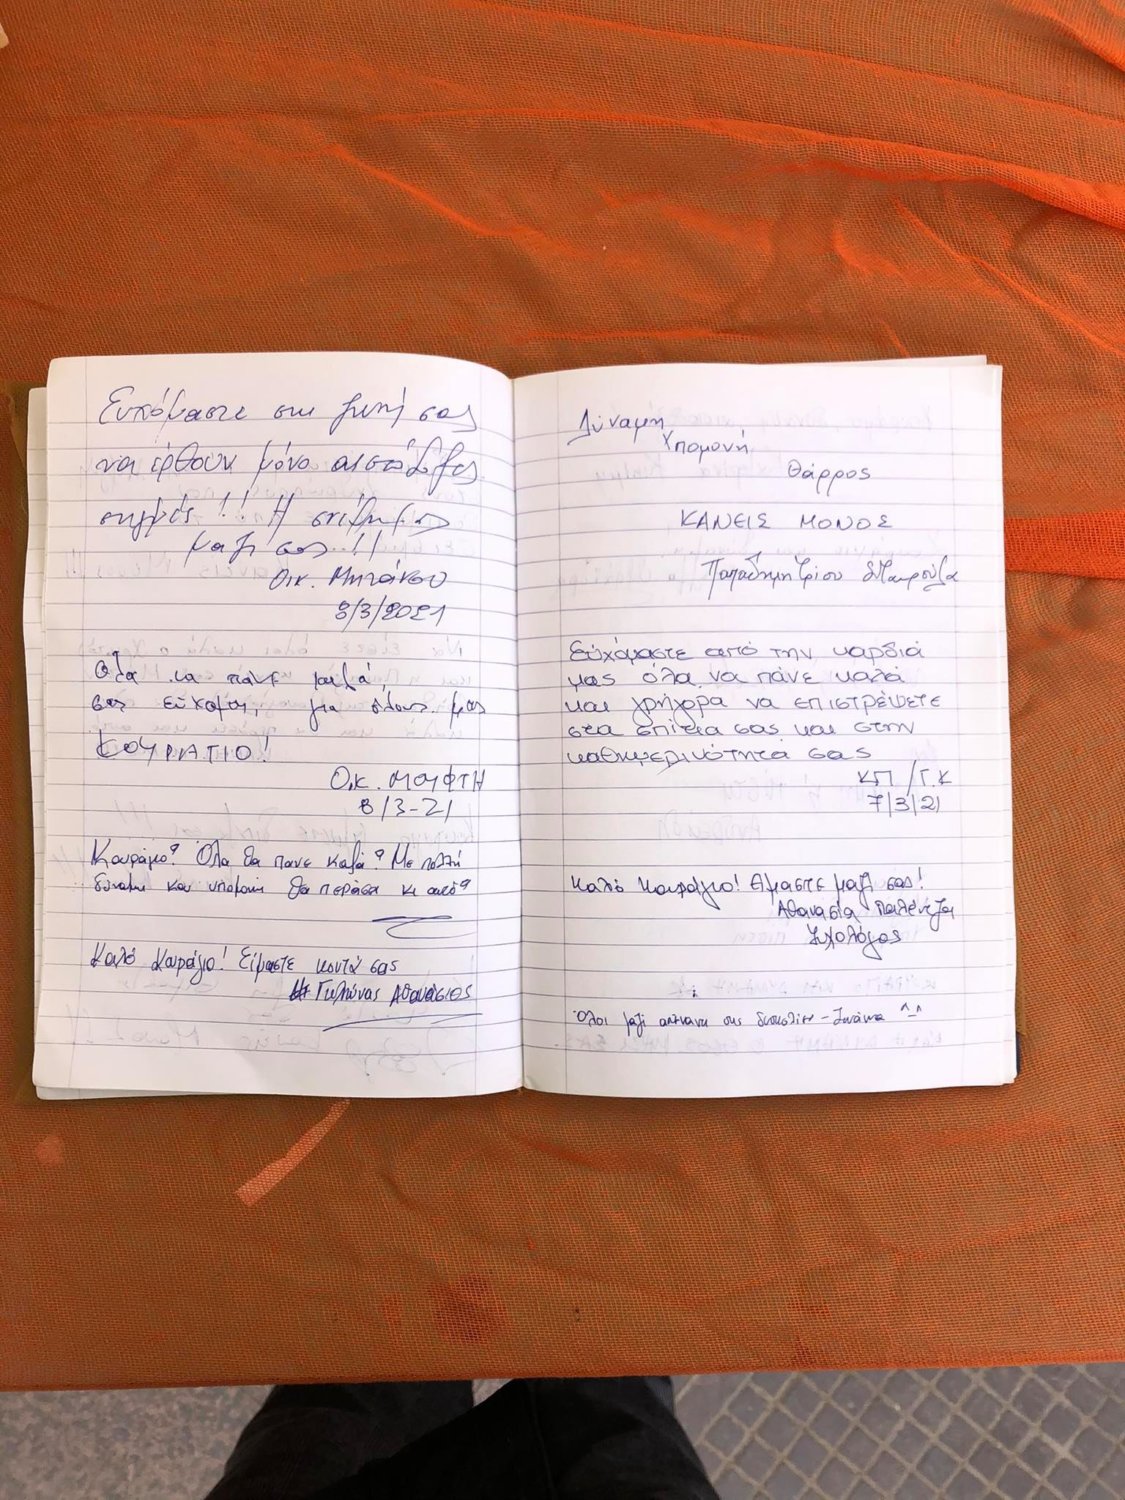 Ευχόμαστε στη ζωή σας
να έρθουν μόνο αισιόδοξες
στιγμές!! Η σκέψη μας
μαζί σας!!
Οικ. Μπτάκου
8/3/2021
Όλα να πάνε καλά,
σας εύχομαι, για όλους μας
ΚΟΥΡΑΓΙΟ!
Οικ. ΜΟΥΦΤΗ
8/3-21
Κουράγιο! Όλα θα πανε καλά! Με πολλή
δύναμη και υπομονη θα περάσει κι αυτό!
Καλό κουράγιο! Είμαστε κοντά σας
Γκλιώνας Αθανάσιος
Δύναμη
Υπομονή
Θάρρος
ΚΑΝΕΙΣ ΜΟΝΟΣ
Παπαδημητρίου Σταυρούλα
Ευχόμαστε από την καρδιά
μας όλα να πάνε καλά
και γρήγορα να επιστρέψετε
στα σπίτια σας και στην
καθημερινότητά σας
ΚΠ / Γ.Κ
7/3/21
Καλό κουράγιο! Είμαστε μαζί σας!
Αθανασία Παλάντζα
Ψυχολόγος
Όλοι μαζί απέναντι στις δυσκολίες - ^_^